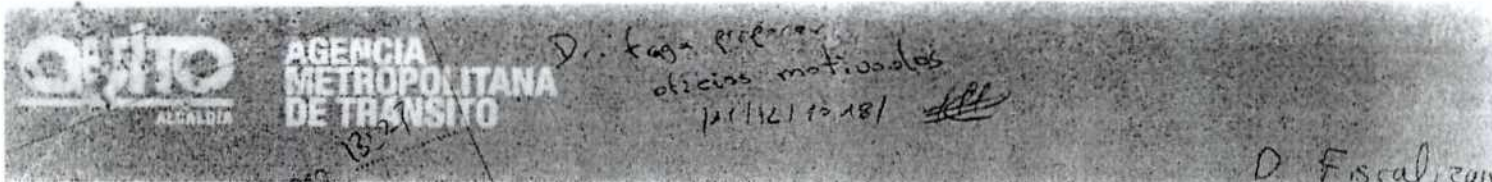 QUITO
ALCALDÍA
AGENCIA
METROPOLITANA
DE TRÁNSITO
Dr. favor preparar
oficios motivados
13:21
D. Fiscalizan